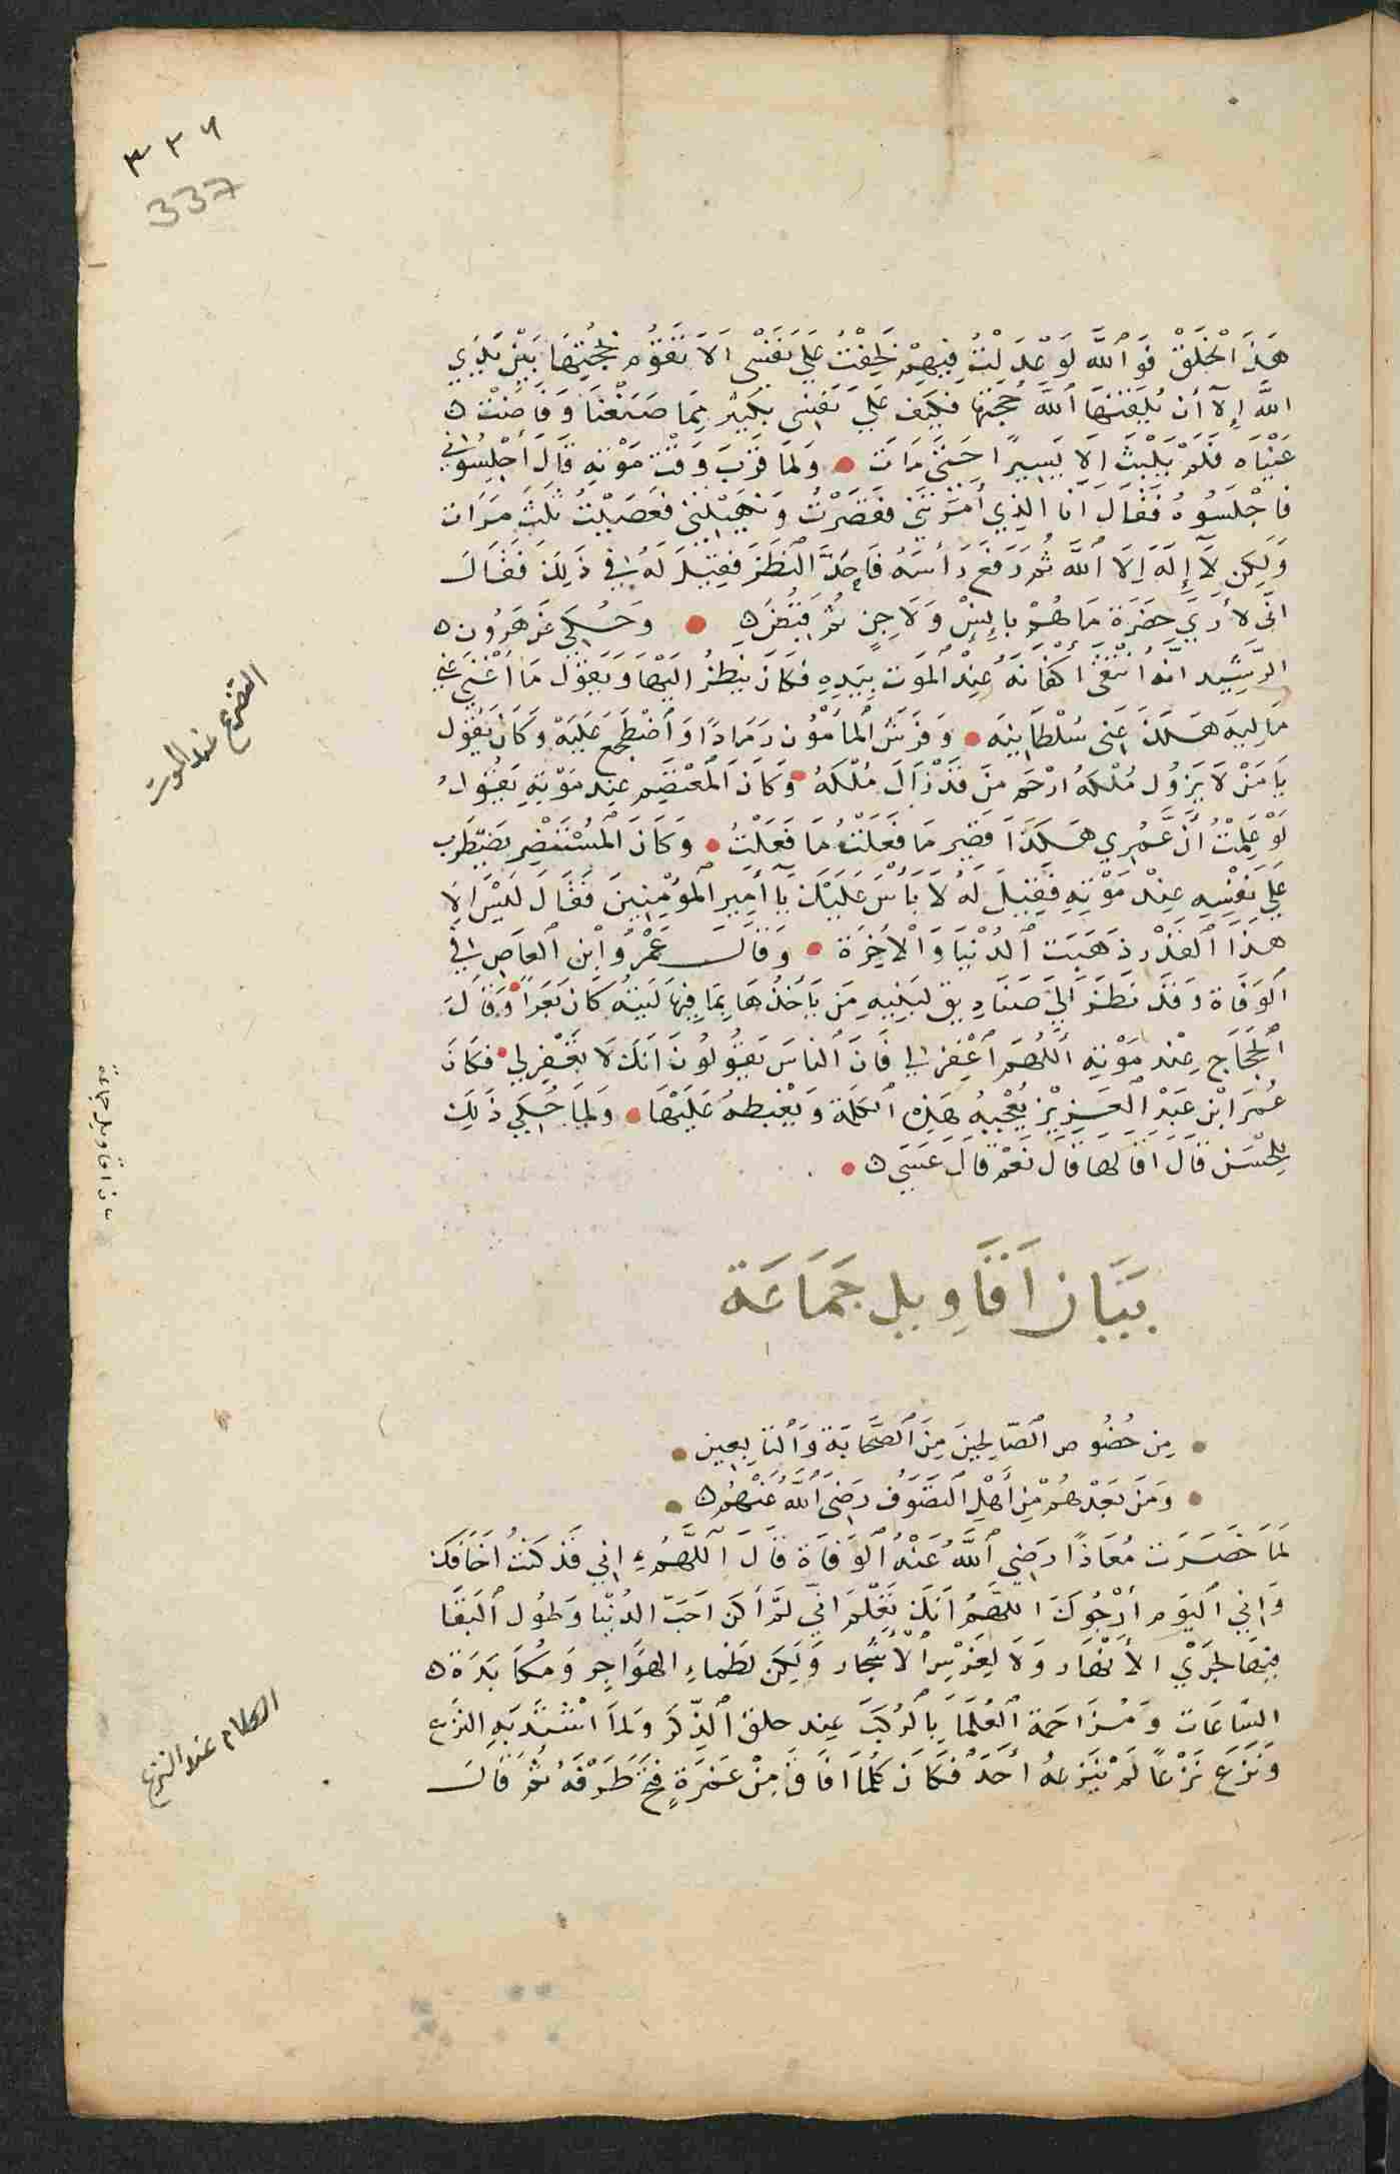 ٣٣٦
337
هَذَا الْخَلْقِ فَوَاللَّهِ لَوْ عَدَلْتُ فِيهِمْ لَخِفْتُ عَلَى نَفْسِي أَلَا تَقُوْم بِحُجَّتِهَا بَيْنَ يَدَيِ
اللَّهِ إِلَّا أَن يُلَقِّنَهَا اللَّهُ حُجَّتَهَا فَكَيْفَ عَلَى نَفْسِي بِكَثِيْرٍ مِمَا صَنَعْنَا وَفَاضَتْ ه
عَيْنَاه فَلَمْ يَلْبَث إِلَّا يَسِيرًا حَتَّى مَاتَ • وَلَمَا قَرُبَ وَقْت مَوْتِهِ قَالَ أَجْلِسُونِي
فَاجْلَسُوهُ فَقَالَ أَنَا الذِي أَمَرْتَنِي فَقَصَّرْتُ وَنَهَيْتَنِي فَعَصَيْتُ ثَلَثَ مَرَات
وَلَكِن لَا إِلَهَ إِلَا اللَّه ثُم رَفَعَ رَأْسَهُ فَاحَدَّ النَّظَرَ فَقِيْلَ لَهُ فِي ذَلِكَ فَقَالَ
انِّي لَأَرَي حَضَرَةً مَا هُمْ بِإِنْسٍ وَلَا جِنٍ ثُم قُبِضَ ه • وَحُكِيَ عَن هَرُون ه
الرَّشِيد انَّه انْتَقَى أَكْفَانَهُ عِنْدَ الْمَوت بِيَدِهِ فَكَانَ يَنظُرُ الَيْهَا وَيَقُوْل مَا أَغْنَى عَنِّي
مَالِيَه هَلَكَ عَنِي سُلْطَانِيَه • وَفَرَشَ الْمَأمُوْن رَمَادًا وَاضْطَجَعَ عَلَيْهِ وَكَانَ يَقُوْل
يَا مَنْ لَا يَزُوْل مُلْكُهُ ارْحَم مَن قَدْ زَالَ مُلْكُهُ • وَكَانَ الْمُعْتَصِم عِند مَوْتِهِ يَقُوْلُ
لَوْ عَلِمْتُ أَنَّ عُمُرِي هَكَذَا قَصِير مَا فَعَلْتُ مَا فَعَلْتُ • وَكَانَ الْمُسْتَنْصِر يَضْطَرِب
عَلَي نَفْسِهِ عِنْدَ مَوْتِهِ فَقِيْلَ لَهُ لَا بَأْسَ عَلَيْكَ يَا أَمِيرَ الْمُؤْمِنِينَ فَقَالَ لَيْسَ إِلَا
هَذَا القَدْر ذَهَبَت الدُنْيَا وَالْأَخِرَة • وَقَالَ عَمْرُو ابْن العَاصِ فِي
الوَفَاة وَقَد نَظَرَ الَى صَنَادِيقَ لِبَنِيهِ مَن يَأخُذُهَا بِمَا فِيهَا لَيْتَهُ كَانَ بَعَراً • وَقَالَ
الْحَجَّاج عِنْد مَوْتِهِ أَللَّهُمَّ اغْفِرْ لِي فَانَّ النَاسَ يَقُوْلُوْنَ اِنَّكَ لَا تَغْفِر لِي • فكَانَ
عُمَرَ ابْن عَبْدِ الْعَزِيْزِ يُعْجِبُهُ هَذِهِ الكَلِمَة وَيَغْبِطهُ عَلَيْهَا • وَلَمَا حُكِيَ ذَلِكَ
لِلْحَسَن قَالَ اقَالهَا قَالَ نَعَمْ قَالَ عَسَىَ ه •
بَيَان أَقَاوِيل جَمَاعَة
• مِن خُصُوص الصَّالِحِينَ مِنَ الصَّحَابَة وَالتَابِعِين •
• وَمَن بَعْدَهُمْ مِن أَهْلِ التَصَوُّف رَضِيَ اللَّهُ عَنْهُم ه •
لَمَا حَضَرَت مُعَاذًا رَضِيَ اللَّهُ عَنْهُ الْوَفَاة قَالَ اللَّهُمَّ اِنِي قَد كُنْتُ اَخَافَكَ
وَإِنِي اليَوْم أَرْجُوكَ اللهُمَّ اِنَّكَ تَعْلَم اِنِّي لَمْ أَكُن احَبّ الدُنْيَا وَطُول البَقَا
فِيهَا لِجَرْي الأَنْهَار وَلَا لِغَرْسِ الأَشْجَار وَلَكِن لِظَمَاءِ الهَوَاجِر وَمُكَابَدَة ه
السَّاعَات وَمُزَاحَمَة العُلَمَا بِالرُّكَب عِند حلق الذِّكر وَلما اشْتَدَّ بَهِ النَّزع
وَنَزَعَ نَزْعاً لَمْ يَنزعهُ أَحَد فَكَانَ كُلَمَا افَاقَ مِنْ غَمْرَةٍ فَتَحَ طَرْفَهُ ثُم قَالَ
التضرع عند الموت
بيان اقاويل جماعة
الكلام عند النزع